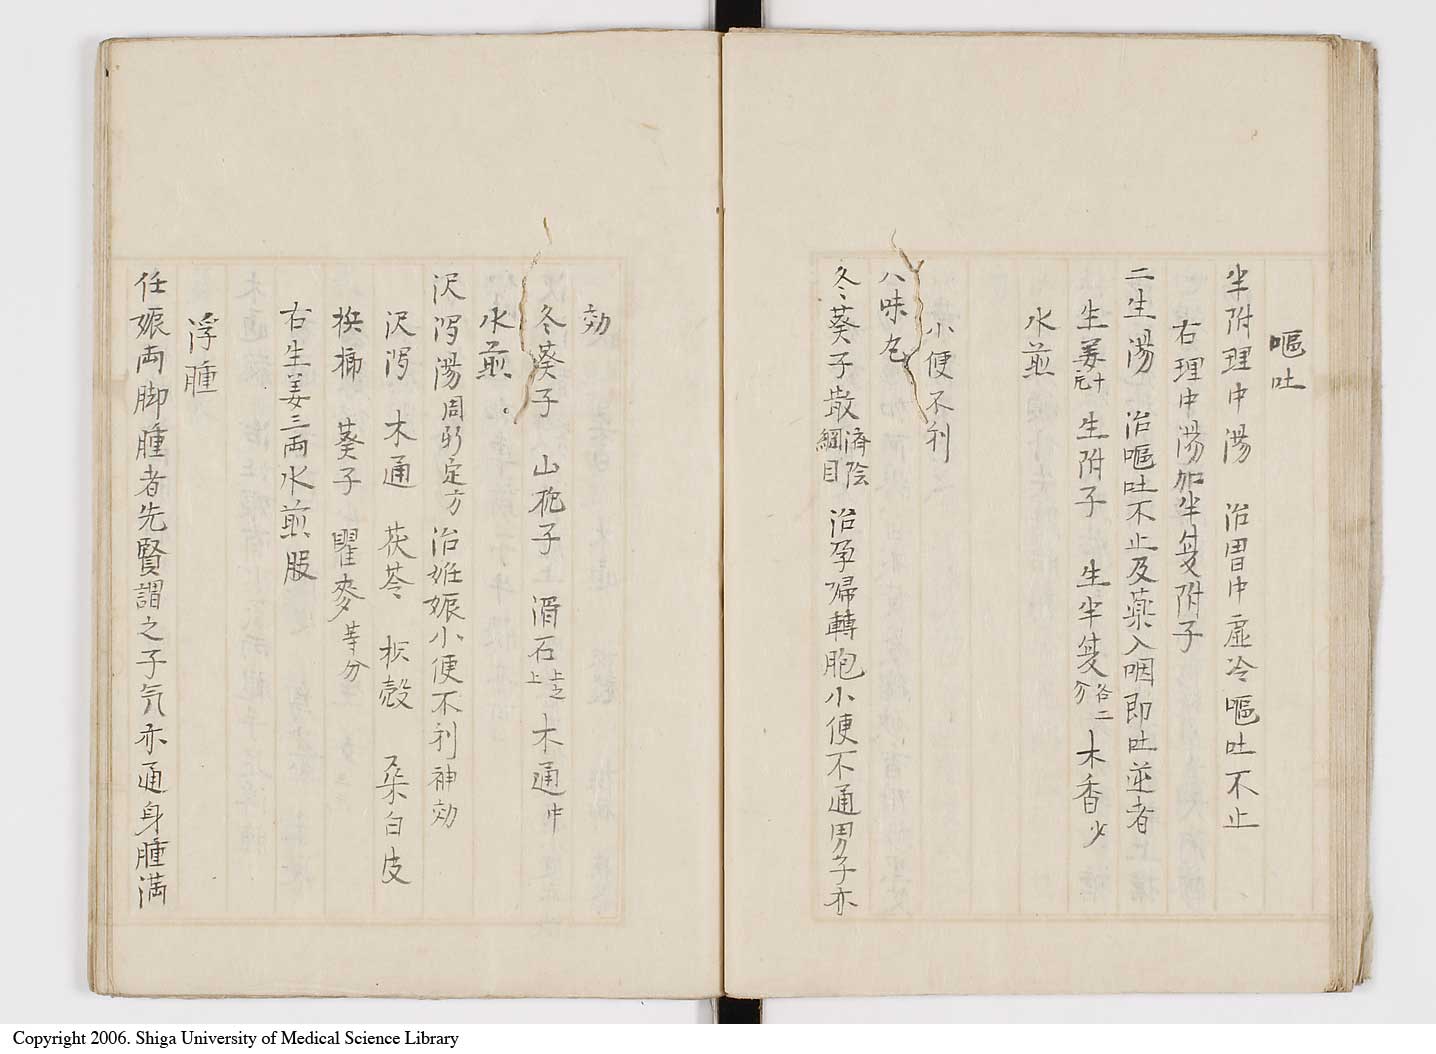 嘔吐
半附理中湯 治胃中虚冷嘔吐不止
右理中湯加半夏附子
二生湯 治嘔吐不止及薬入咽即吐逆者
生姜 生附子 生半夏 各二分 木香少
水煎
小便不利
八味丸
冬葵子散 済陰綱目 治孕婦轉胞小便不通男子亦
効
冬葵子 山梔子 滑石 上之上 木通中
水煎
沢瀉湯 周防定方 治妊娠小便不利神効
沢瀉 木通 茯苓 枳殻 桒白皮
檳榔 葵子 瞿麥 等分
右生姜三両水煎服
浮腫
任娠両脚腫者先賢謂之子気亦通身腫満
Copyright 2006. Shiga University of Medical Science Library